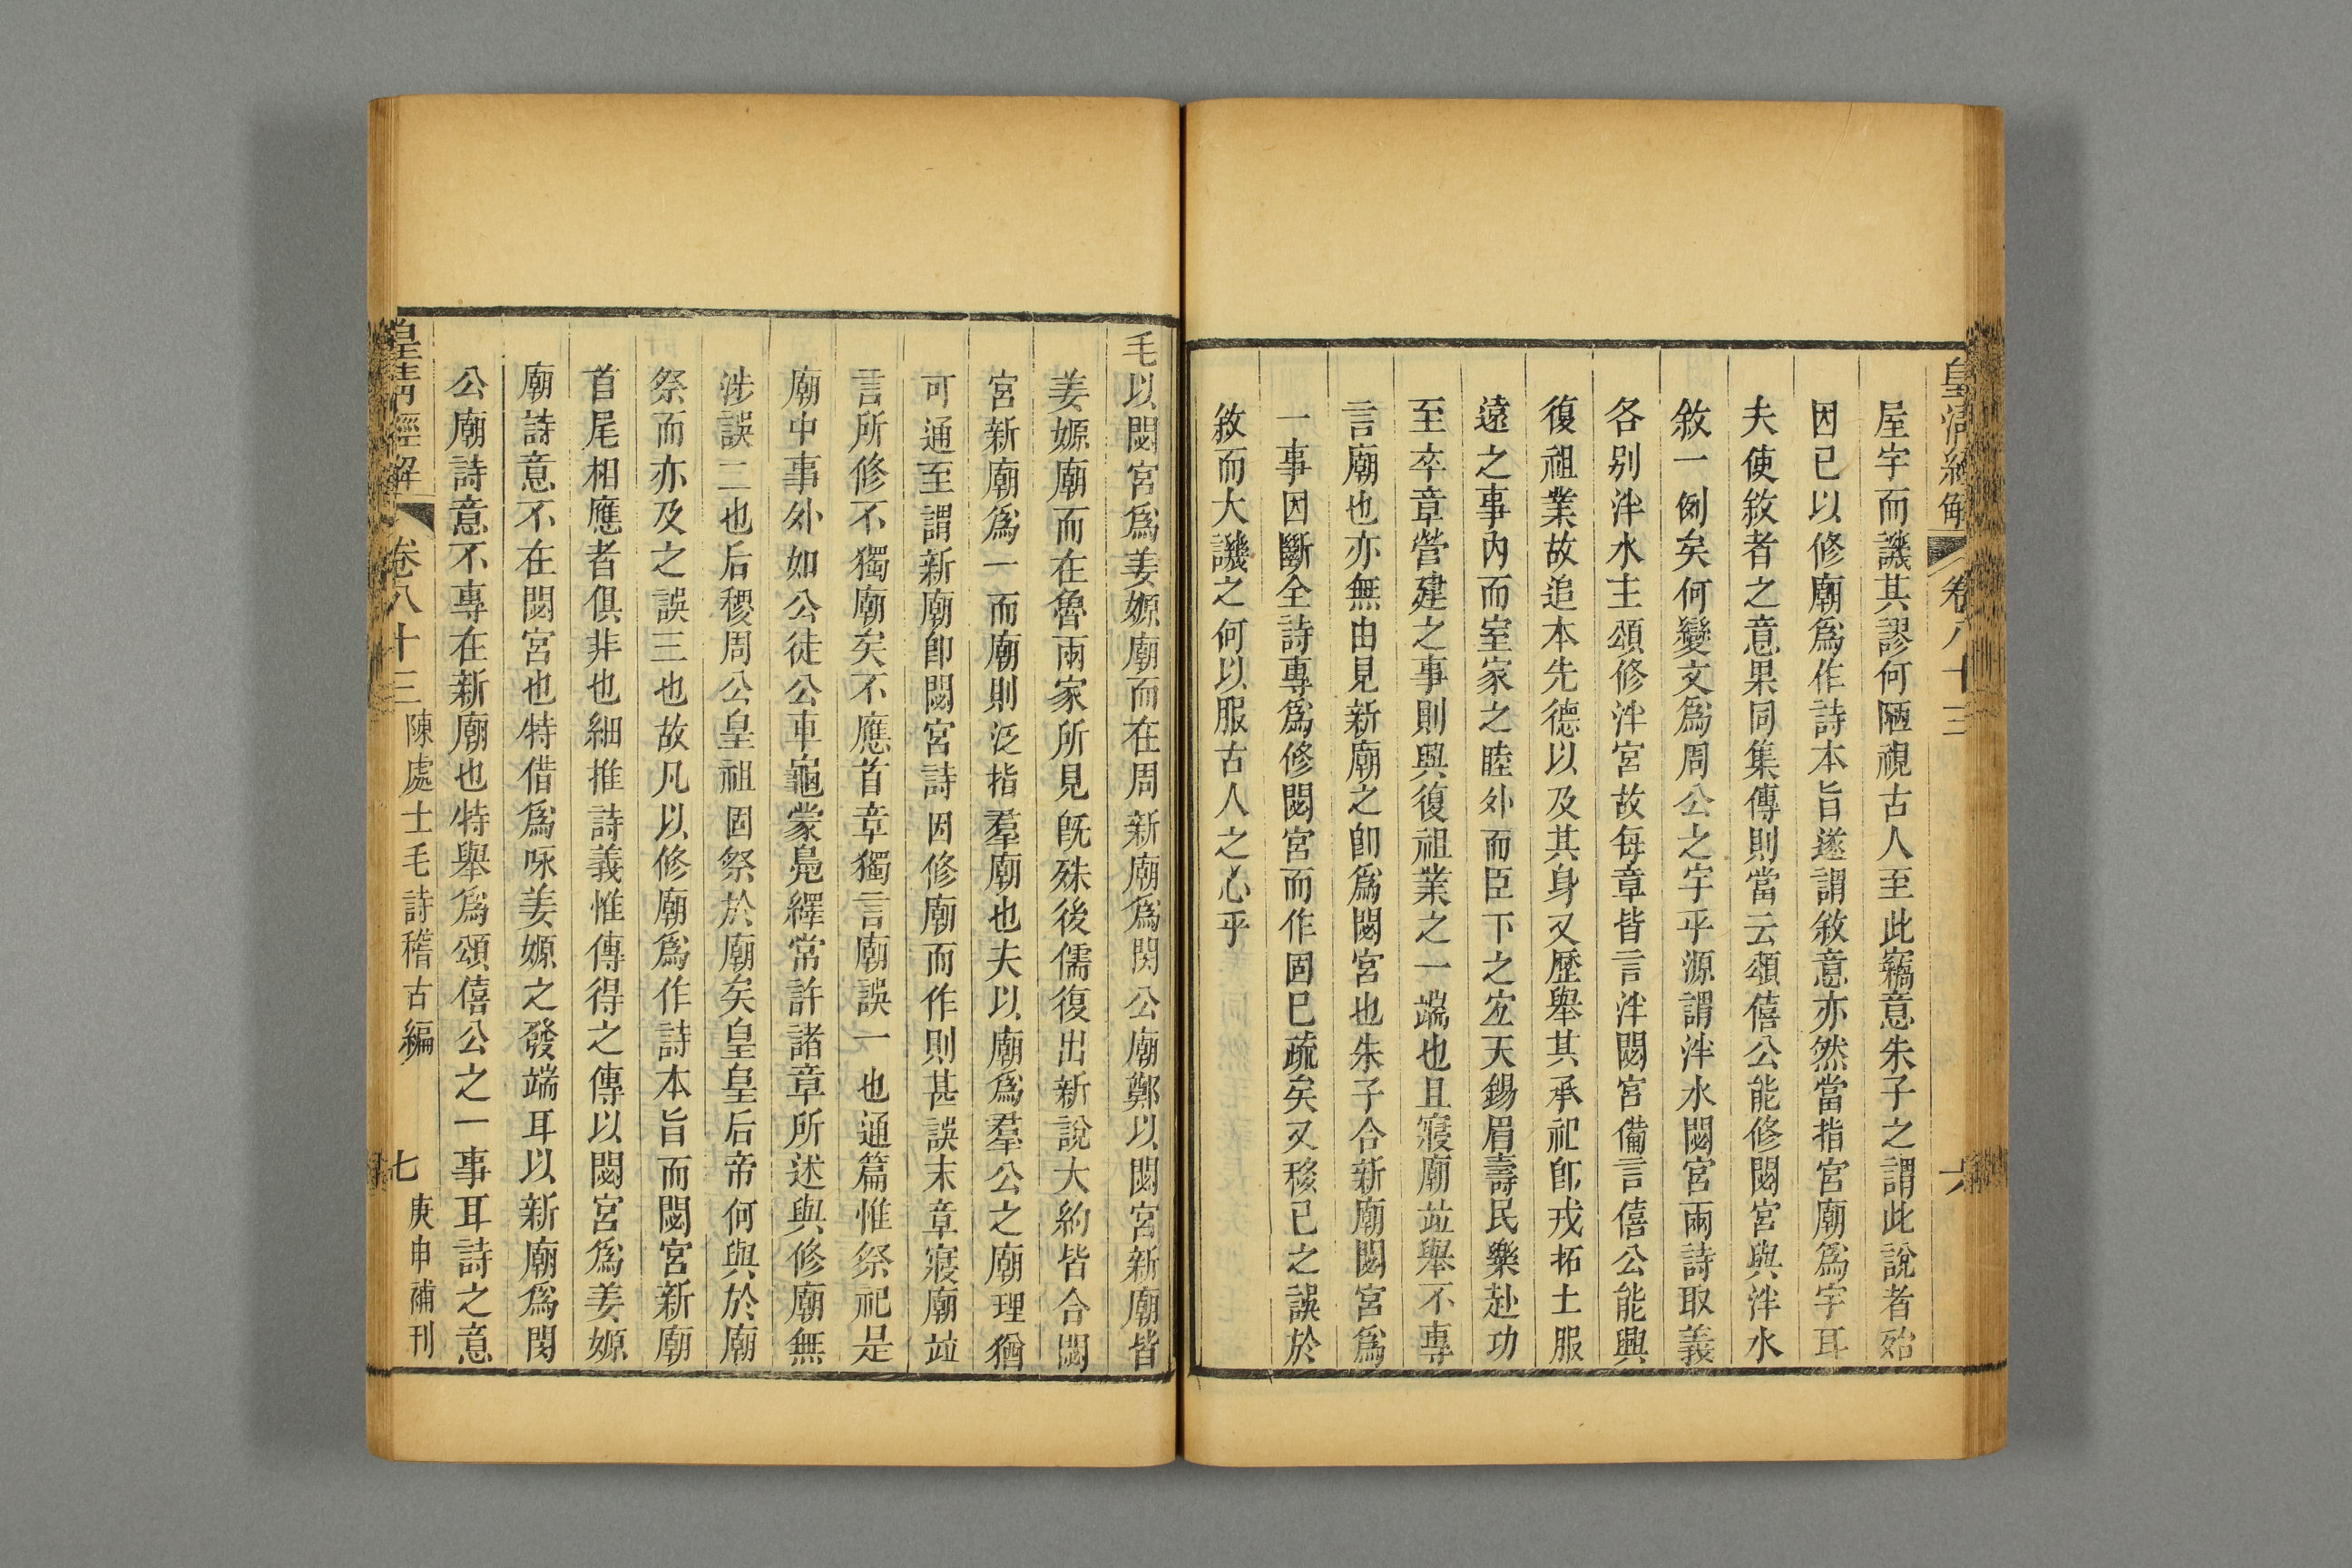 皇清經解 卷八十三 六
屋宇而譏其謬何陋視古人至此竊意朱子之謂此說者殆
因已以修廟爲作詩本旨遂謂敘意亦然當指宮廟爲宇耳
夫使敘者之意果同集傳則當云頌僖公能修閟宮與泮水
敘一例矣何變文爲周公之宇乎源謂泮水閟宮兩詩取義
各别泮水主頌修泮宮故每章皆言泮閟宮備言僖公能興
復祖業故追本先德以及其身又歷舉其承祀卽戎拓土服
遠之事內而室家之睦外而臣下之宐天錫眉壽民樂赴功
至卒章營建之事則興復祖業之一端也且寢廟竝舉不專
言廟也亦無由見新廟之卽爲閟宮也朱子合新廟閟宮爲
一事因斷全詩專爲修閟宮而作固巳疏矣又移已之誤於
敘而大譏之何以服古人之心乎
毛以閟宮爲姜嫄廟而在周新廟爲閔公廟鄭以閟宮新廟皆
姜嫄廟而在魯兩家所見旣殊後儒復出新說大約皆合閟
宮新廟爲一而廟則泛指羣廟也夫以廟爲羣公之廟理猶
可通至謂新廟卽閟宮詩因修廟而作則甚誤末章寢廟竝
言所修不獨廟矣不應首章獨言廟誤一也通篇惟祭祀是
廟中事外如公徒公車龜蒙鳧繹常許諸章所述與修廟無
涉誤二也后稷周公皇祖固祭於廟矣皇皇后帝何與於廟
祭而亦及之誤三也故凡以修廟爲作詩本旨而閟宮新廟
首尾相應者俱非也細推詩義惟傳得之傳以閟宮爲姜嫄
廟詩意不在閟宮也特借爲咏姜嫄之發端耳以新廟爲閔
公廟詩意不專在新廟也特舉爲頌僖公之一事耳詩之意
皇清經解 卷八十三 陳處士毛詩稽古編 七 庚申補刊